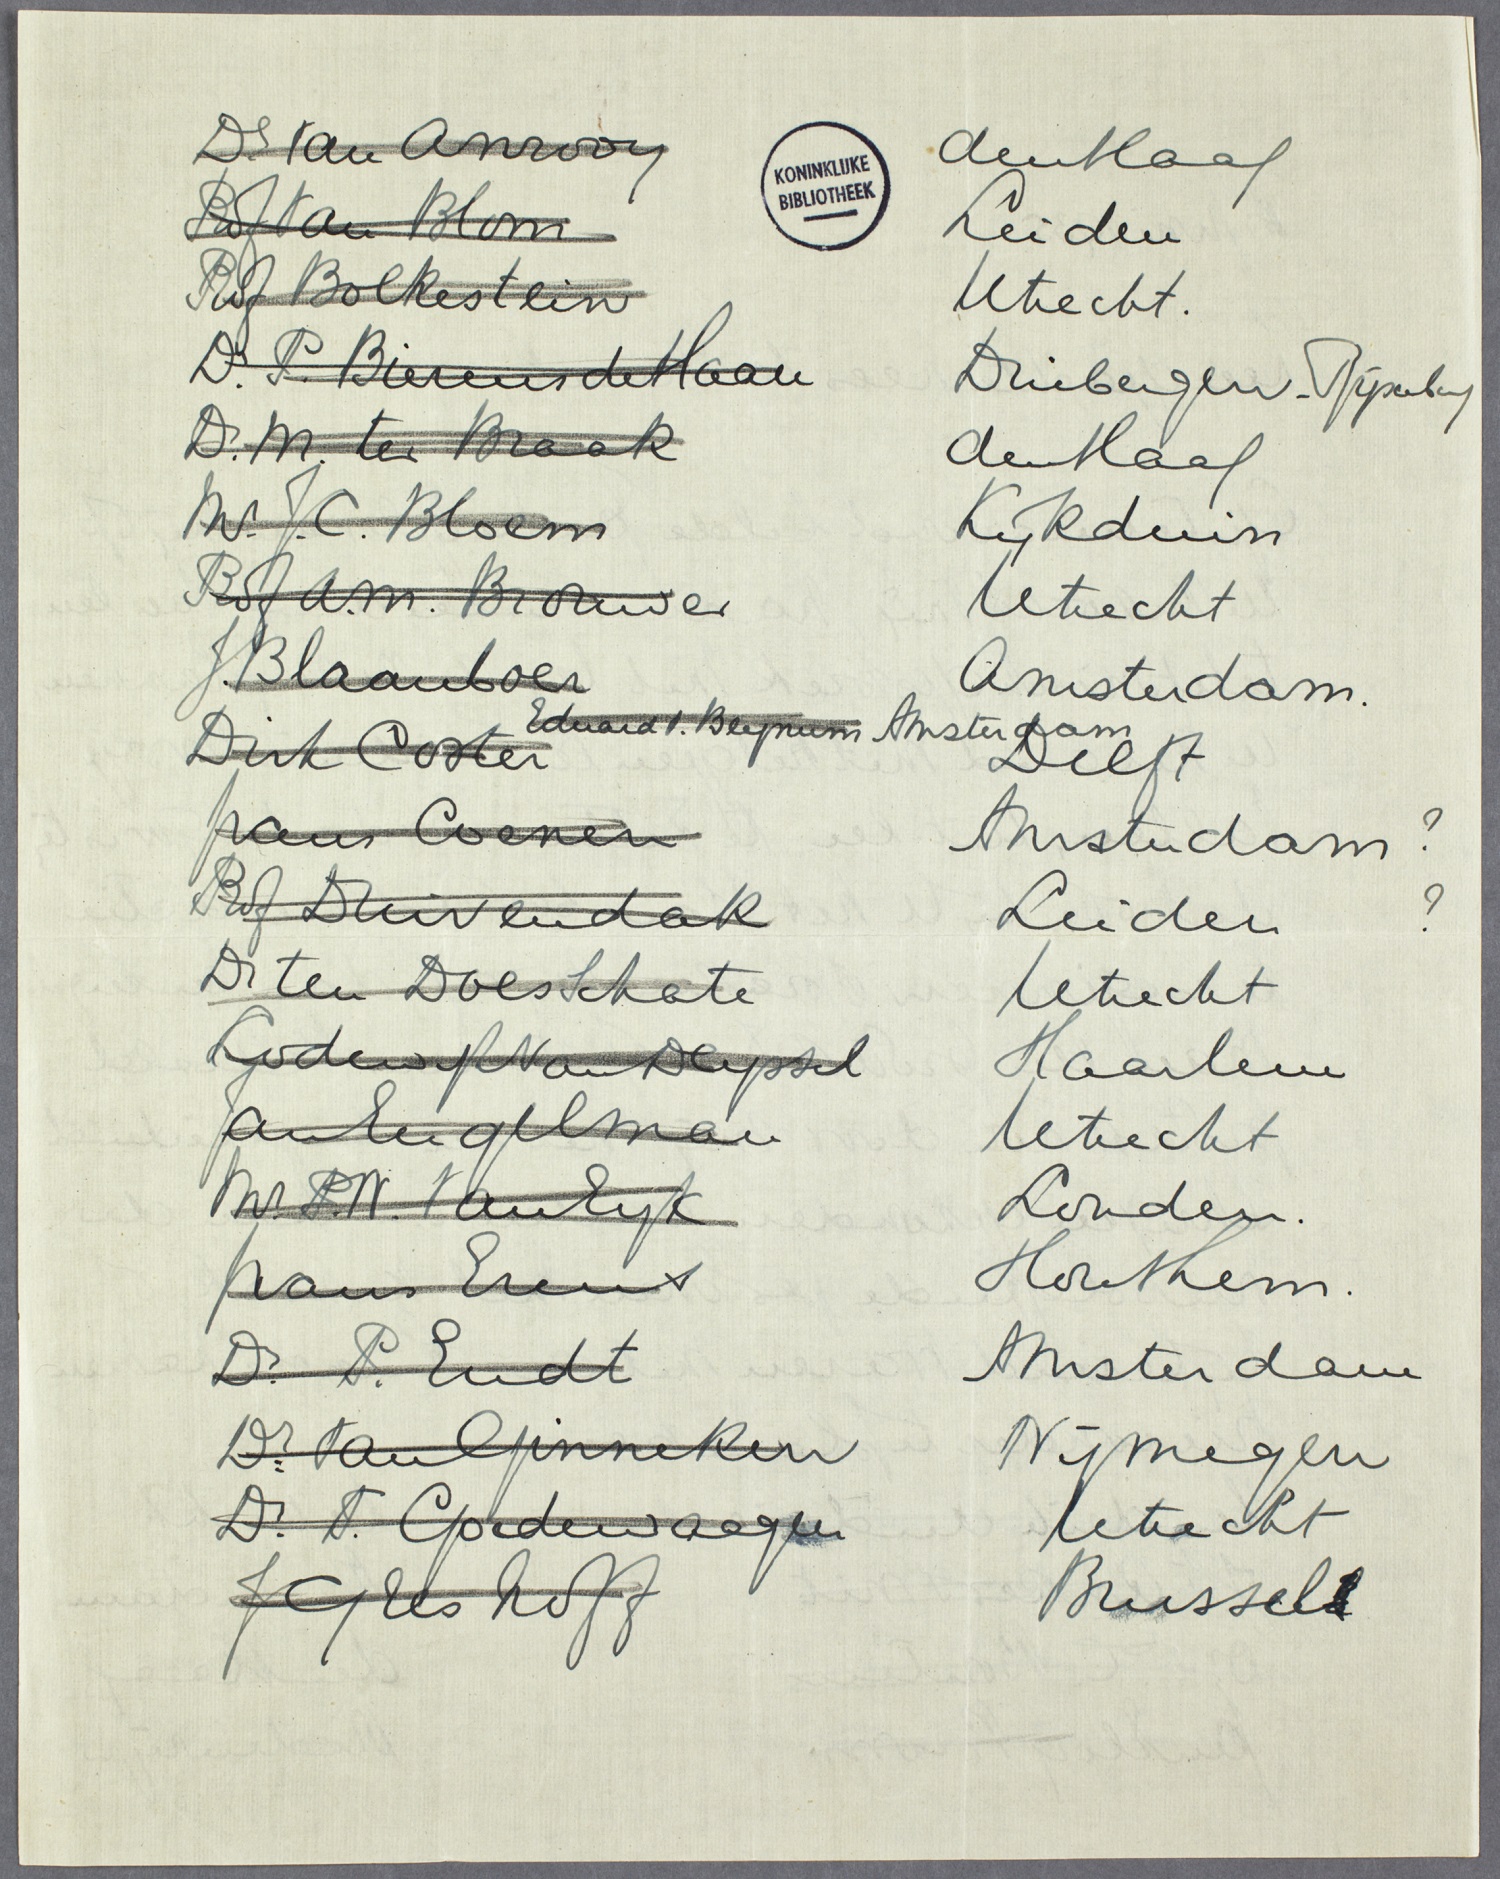 Dr. van Anrooy den Haag
KONINKLIJKE
BIBLIOTHEEK
Prof van Blom Leiden
Prof Bolkestein Utrecht.
Dr. P. Bierens de Haan Driebergen-Rijsenburg
Dr. M. ter Braak den Haag
Mr. J.C. Bloem Kijkduin
Prof A.M. Brouwer Utrecht
J. Blaauboer Amsterdam.
Eduard v. Beynum Amsterdam
Dirk Coster Delft
Frans Coenen Amsterdam ?
Prof Duivendak Leiden ?
Dr ten Doesschate Utrecht
Lodewijk van Deyssel Haarlem
Jan Engelman Utrecht
Mr. P.N. van Eyk Londen.
Frans Erens Houthem.
Dr. P. Endt Amsterdam
Dr. van Ginneken Nijmegen
Dr. T. Goedewaagen Utrecht
J Greshoff Brussel